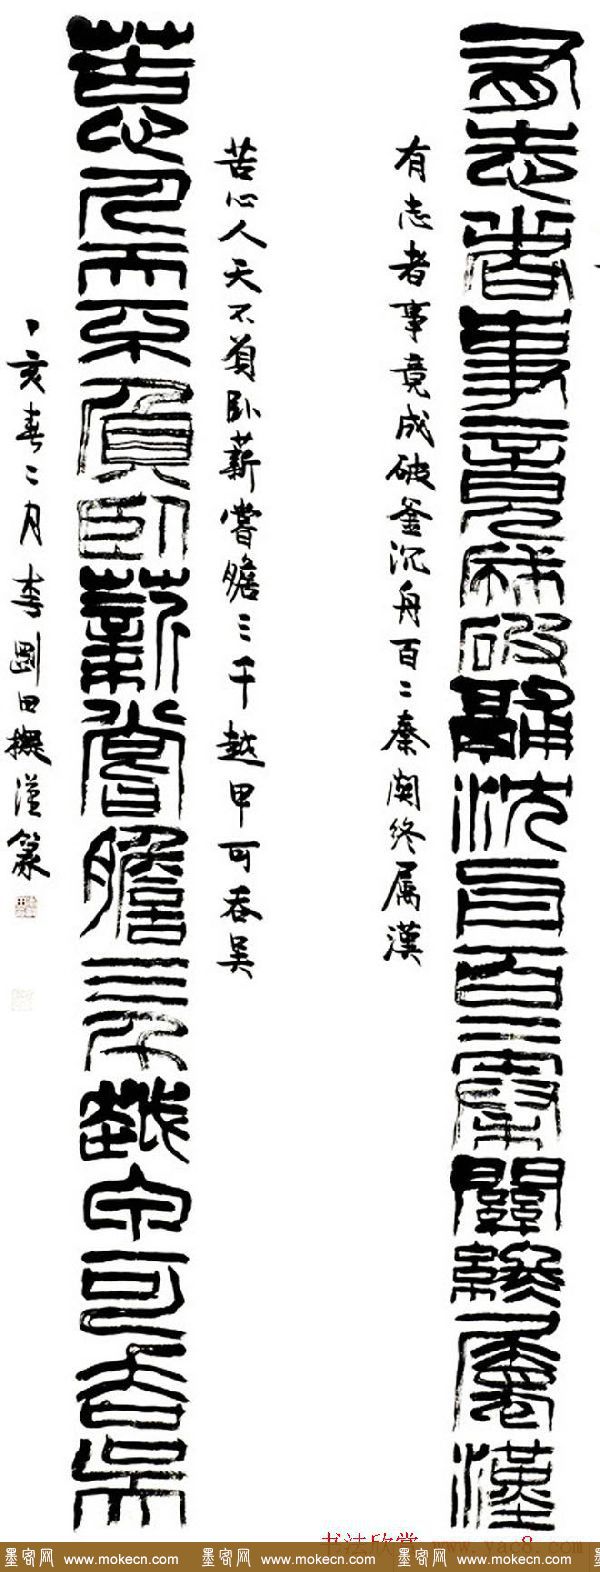 有志者事竟成破釜沈舟百二秦關終屬漢
有志者事竟成破釜沉舟百二秦関终属漢
苦心人天不負臥薪嘗膽三千越甲可吞吳
苦心人天不負卧薪嘗膽三千越甲可吞吴
丁亥春二月李剛田橅漢篆
书法欣赏 www.yac8.com
墨客网 www.mokecn.com 墨客网 www.mokecn.com 墨客网 www.mokecn.com